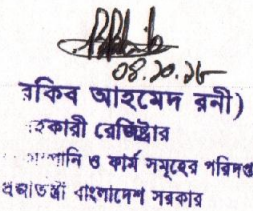 08.10.16
রকিব আহমেদ রনী)
হকারী রেজিষ্ট্রার
ানি ও ফার্ম সমূহের পরিদপ্ত
প্রজাতন্ত্রী বাংলাদেশ সরকার